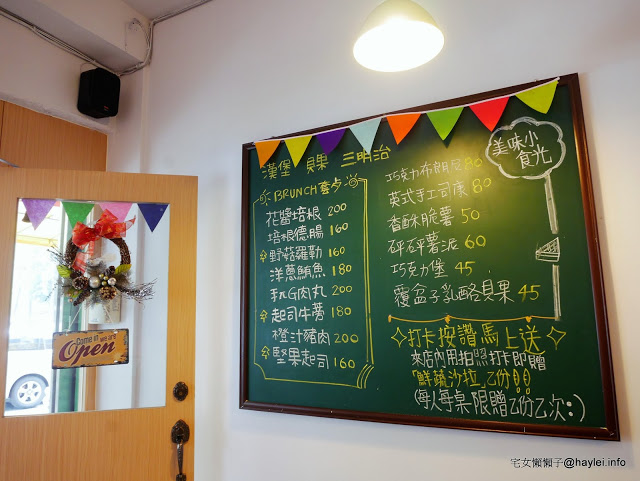 漢堡 貝果 三明治
BRUNCH套夕
花醬培根 200
培根德腸 160
野菇羅勒 160
洋蔥鮪魚 180
起司牛蒡 180
橙汁豬肉 200
堅果起司 160
巧克力布朗尼 80
英式手工司康 80
香酥米脆薯 50
砰砰薯泥 60
巧克力堡 45
覆盆子乳酪貝果 45
美味小食光
打卡按讚馬上送
來店內用拍照打卡即贈
「鮮蔬沙拉」乙份!!
(每人每桌限贈乙份乙次:)
Come in we are
Open
宅女懶懶子@haylei.info